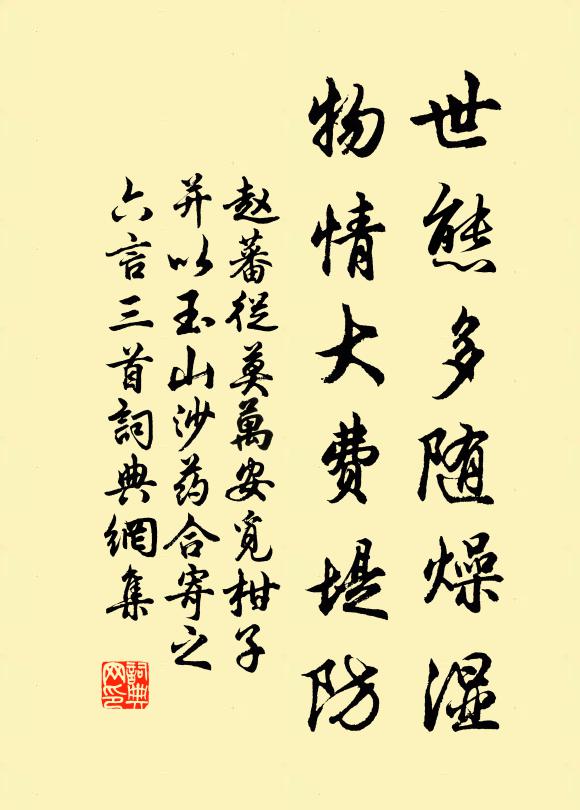 世態多随燥濕
物情大費堤防
赵蕃從莫萬安覓柑子
并以玉山沙药合寄之
六言三首詞典網集
詞典
网印